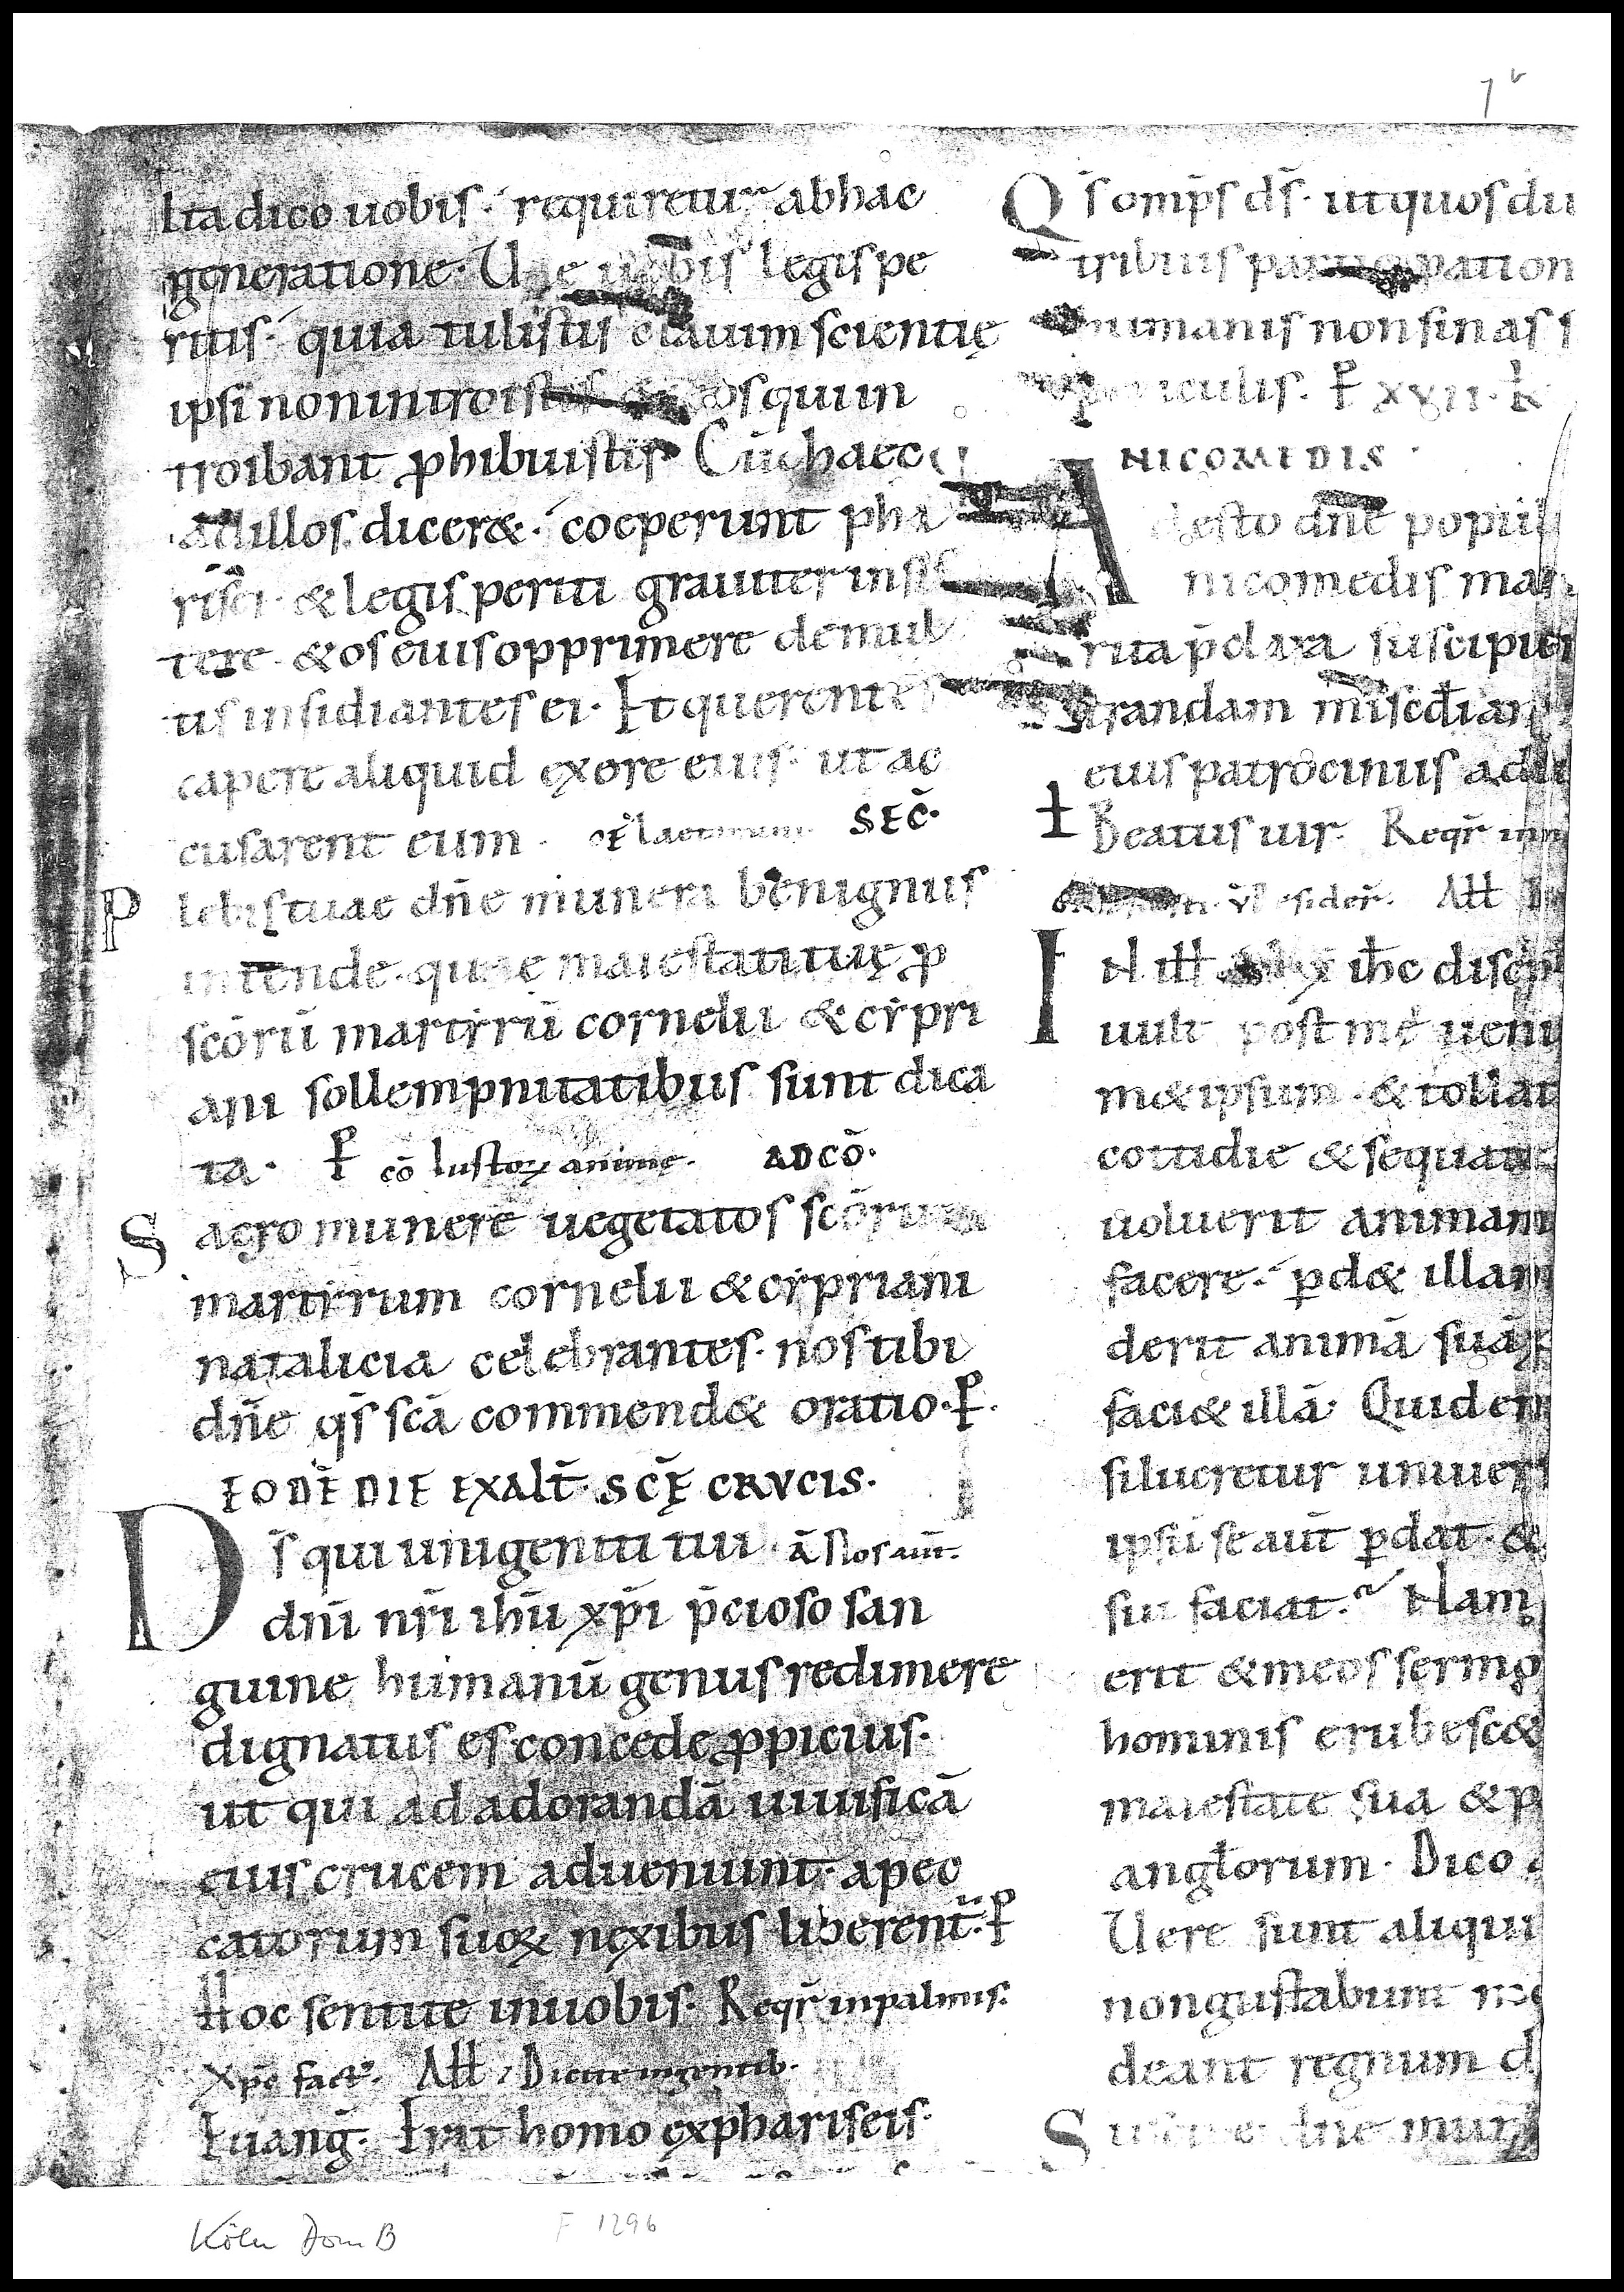 1v
Ita dico uobis · requiretur ab hac
generatione · Uae uobis legispe
ritis · quia tulistis clauim scientię
ipsi non introistis & eos qui in
troibant ꝓhibuistis Cū haec
ad illos dicer& · coeperunt pha
risei · & legis periti grauiter insis
tere · & os eius opprimere de mul
tis insidiantes ei · Et querentes
capere aliquid ex ore eius · ut ac
cusarent eum · OF laetamini SEC̄ ·
P lebis tuae dn̄e munera benignus
intende · quae maiestati tuę ꝓ
sc̄orū martirū cornelii & cẏpri
ani sollempnitatibus sunt dica
ta · P cō Iustoꝝ anime · AD CO᷃ ·
S acro munere uegetatos sc̄orum
martirum cornelii & cẏpriani
natalicia celebrantes · nos tibi
dn̄e qs̄ sc̄a commend& oratio · P ·
EODĒ DIE EXALT̄ · SCĘ̄ CRVCIS ·
D s̄ qui unigeniti tui · ā Nos aut̄ ·
dn̄i nr̄i ihū xp̄i p̄cioso san
guine humanū genus redimere
dignatus es concede ꝓpicius ·
ut qui ad adorandā uiuificā
eius crucem adueniunt · a pec
catorum suoꝝ nexibus liberent̄ · P
Hoc sentite in uobis · Reqr̄ in palmis ·
Xpc̄ fact᷒ · All Dicite in gentib ·
Euanḡ · Erat homo ex phariseis ·
Q s̄ omp̄s ds̄ · ut quos du
tribuis participation
humanis non sinas s
periculis · P XVII · K
NICOMIDIS ·
A desto dn̄e popul
nicomedis mar
rita p̄clara suscipie
trandam mīsc̄diam
eius patrociniis adiu
Beatus uir · Reqr̄ inn
v̄ desider̄ · All
I N ill ihc disc̄ip
uult post me ueni
m& ipsum · & tollat
cottidie & sequat
uoluerit animam
facere · ꝑd& illam
derit animā suā ꝓ
faci& illā · Quid en
si lucretur uniuers
ipsū se aut̄ ꝑdat · &
sui faciat · Nam
erit & meos sermo
hominis erubesc&
maiestate sua & p
angłorum · Dico a
Uere sunt aliqui
non gustabunt mo
deant regnum d
S uscipe dn̄e mun
Köln DomB F 1296